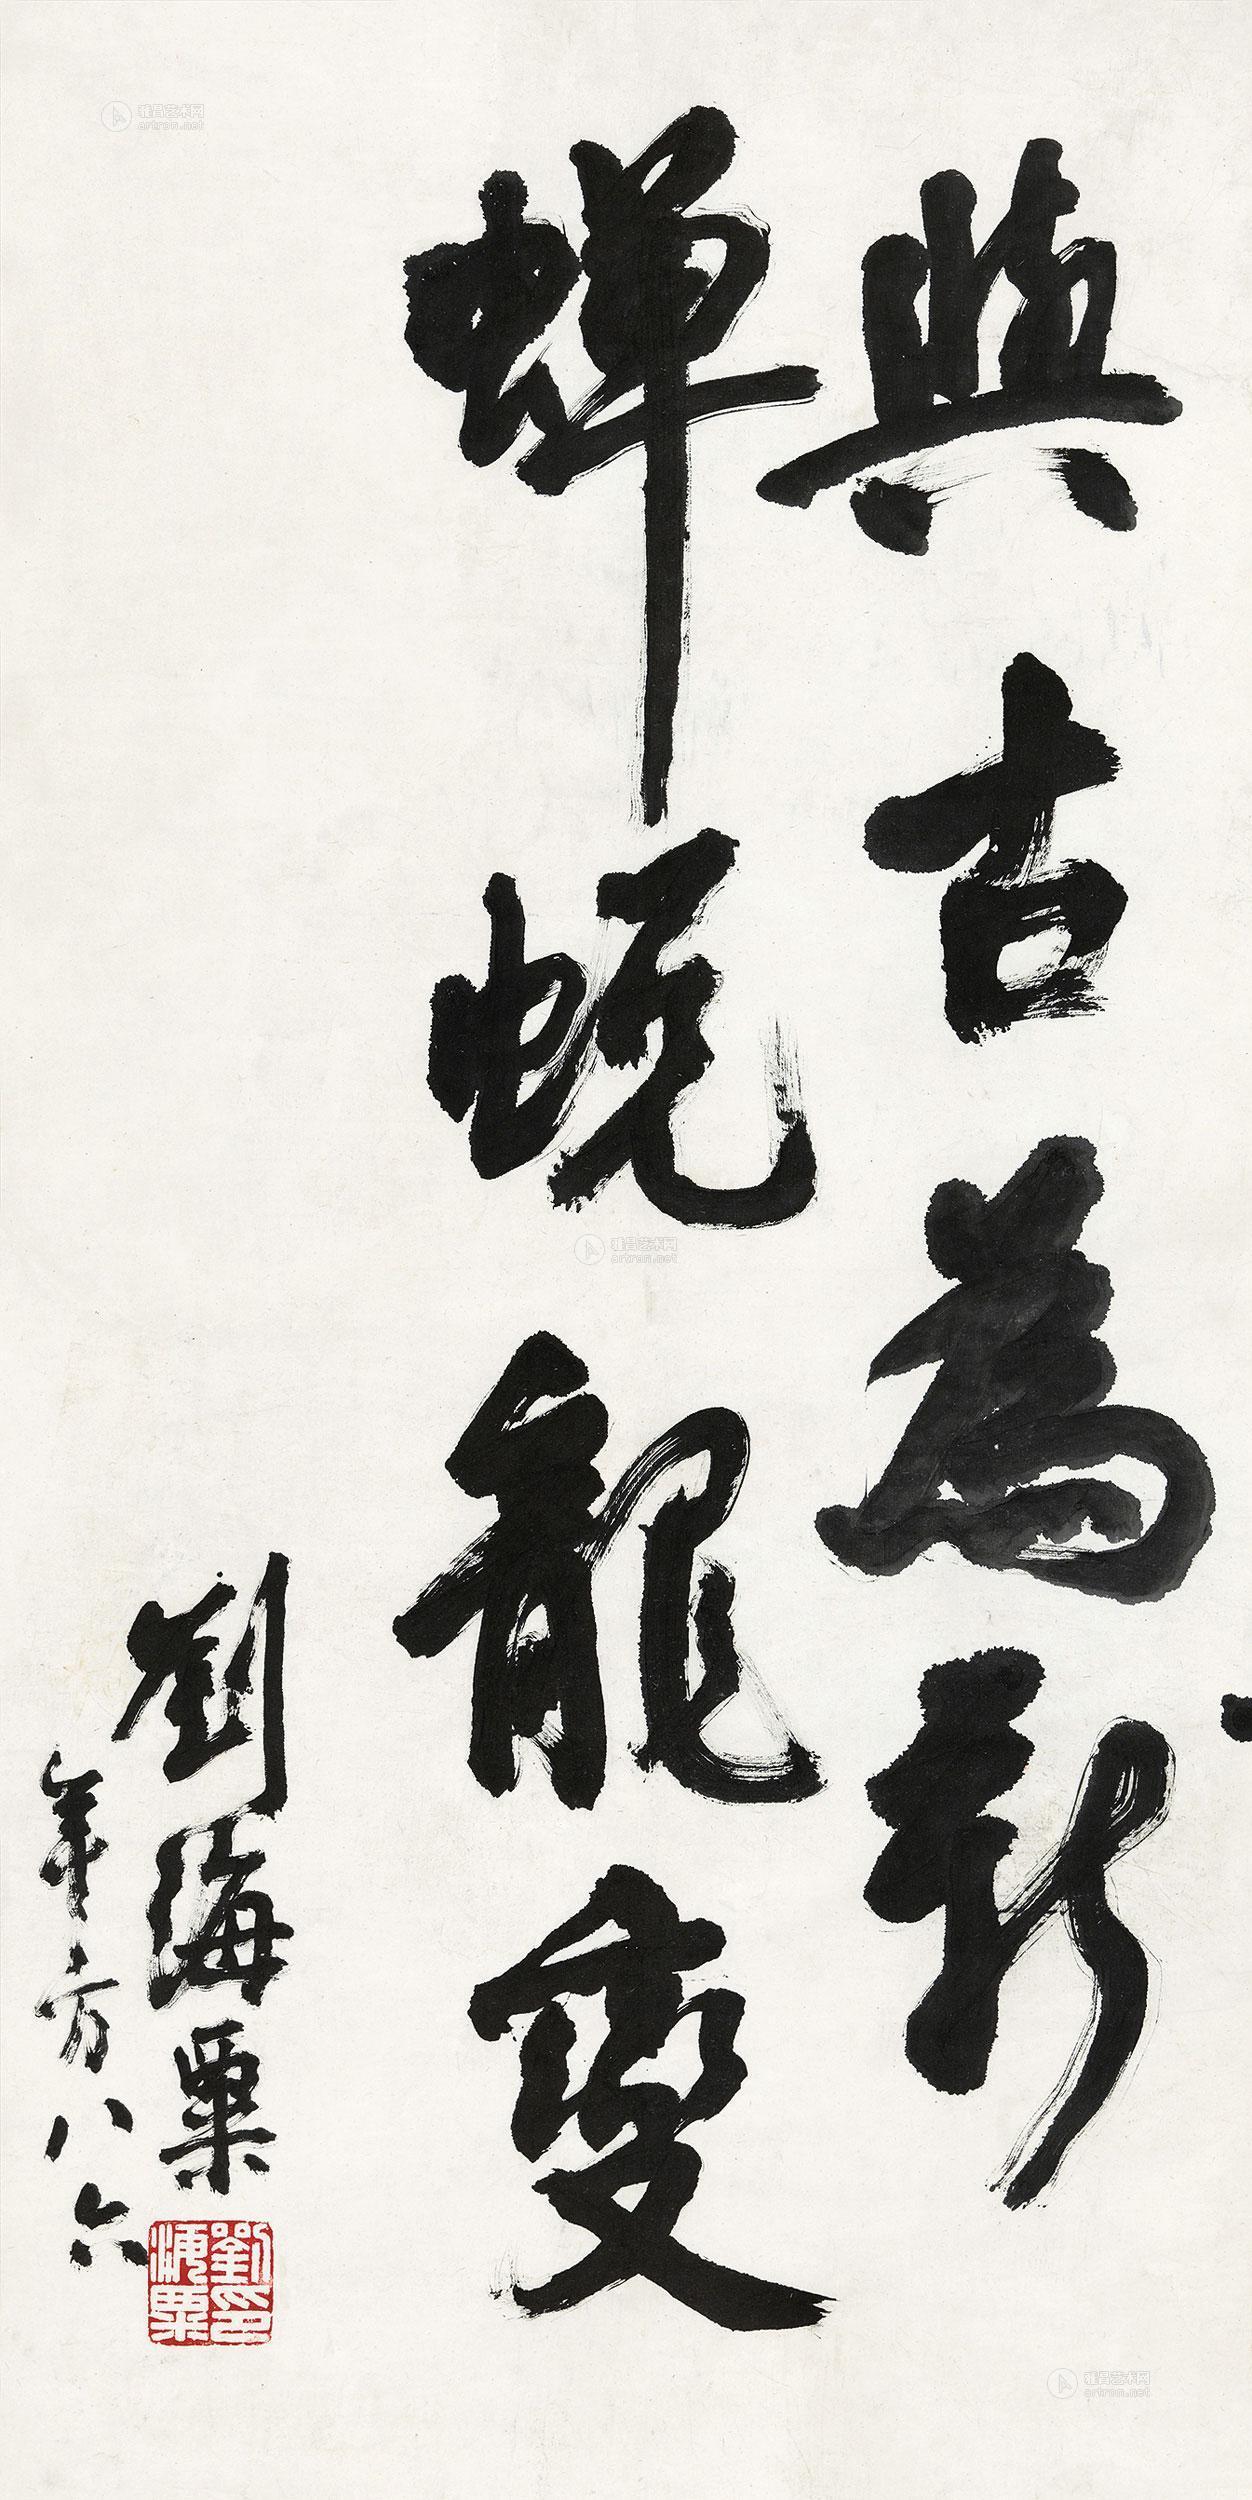 與古為新
蟬蛻龍變
劉海粟
年方八六
劉海粟印
雅昌艺术网
artron.net
雅昌艺术网
artron.net
雅昌艺术网
artron.net